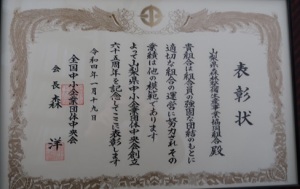 表彰状
山梨県森 産事業協同組合殿
貴組合は組合員の強固な団結のもとに
適切な組合の運営に努力されその
業績は他の模範であります
よって山梨県中小企業団体中央会創立
六十五周年を記念してここに表彰します
令和四年一月十九日
全国中小企業団体中央会
会長 森 洋